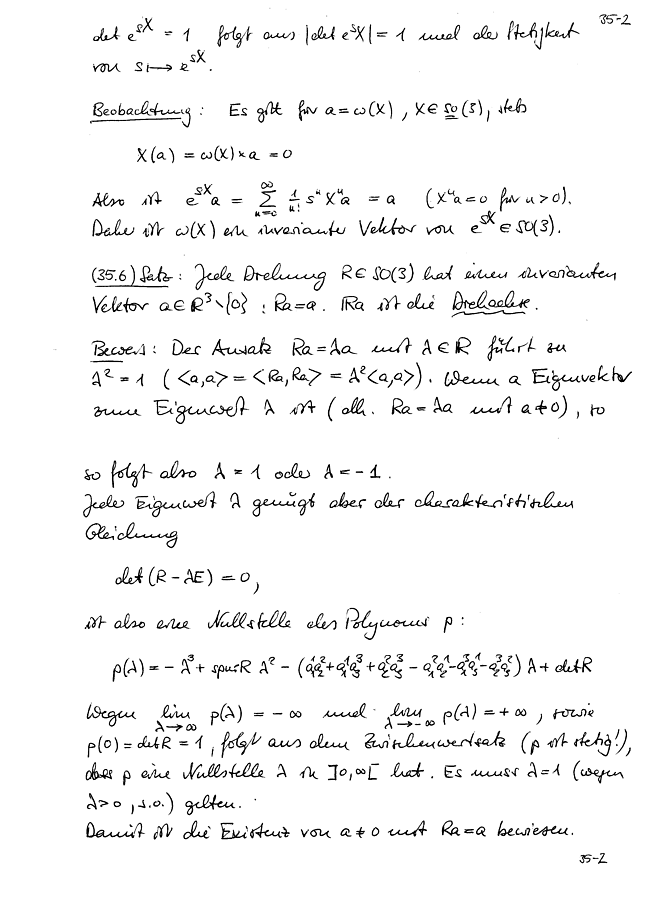 35-2
det e^{sX} = 1 folgt aus |det e^{sX}| = 1 und der Stetigkeit
von s ↦ e^{sX}.
Beobachtung: Es gilt für a = ω(X), X ∈ so(3), stets
X(a) = ω(X) × a = 0
Also ist e^{sX}a = ∑_{n=0}^{∞} 1/n! s^n X^n a = a (X^n a = 0 für n > 0).
Daher ist ω(X) ein invarianter Vektor von e^{sX} ∈ SO(3).
(35.6) Satz: Jede Drehung R ∈ SO(3) hat einen invarianten
Vektor a ∈ ℝ³∖{0} : Ra = a. ℝa ist die Drehachse.
Beweis: Der Ansatz Ra = λa mit λ ∈ ℝ führt zu
λ² = 1 (<a,a> = <Ra,Ra> = λ²<a,a>). Wenn a Eigenvektor
zum Eigenwert λ ist (d.h. Ra = λa mit a ≠ 0), so
so folgt also λ = 1 oder λ = -1.
Jeder Eigenwert λ genügt aber der charakteristischen
Gleichung
det(R - λE) = 0,
ist also eine Nullstelle des Polynoms p:
p(λ) = -λ³ + spur R λ² - (a¹₁a²₂ + a¹₁a³₃ + a²₂a³₃ - a²₁a¹₂ - a³₁a¹₃ - a³₂a²₃) λ + det R
Wegen lim_{λ→∞} p(λ) = -∞ und lim_{λ→-∞} p(λ) = +∞, sowie
p(0) = det R = 1, folgt aus dem Zwischenwertsatz (p ist stetig!),
dass p eine Nullstelle λ in ]0,∞[ hat. Es muss λ = 1 (wegen
λ > 0, s.o.) gelten.
Damit ist die Existenz von a ≠ 0 mit Ra = a bewiesen.
35-2